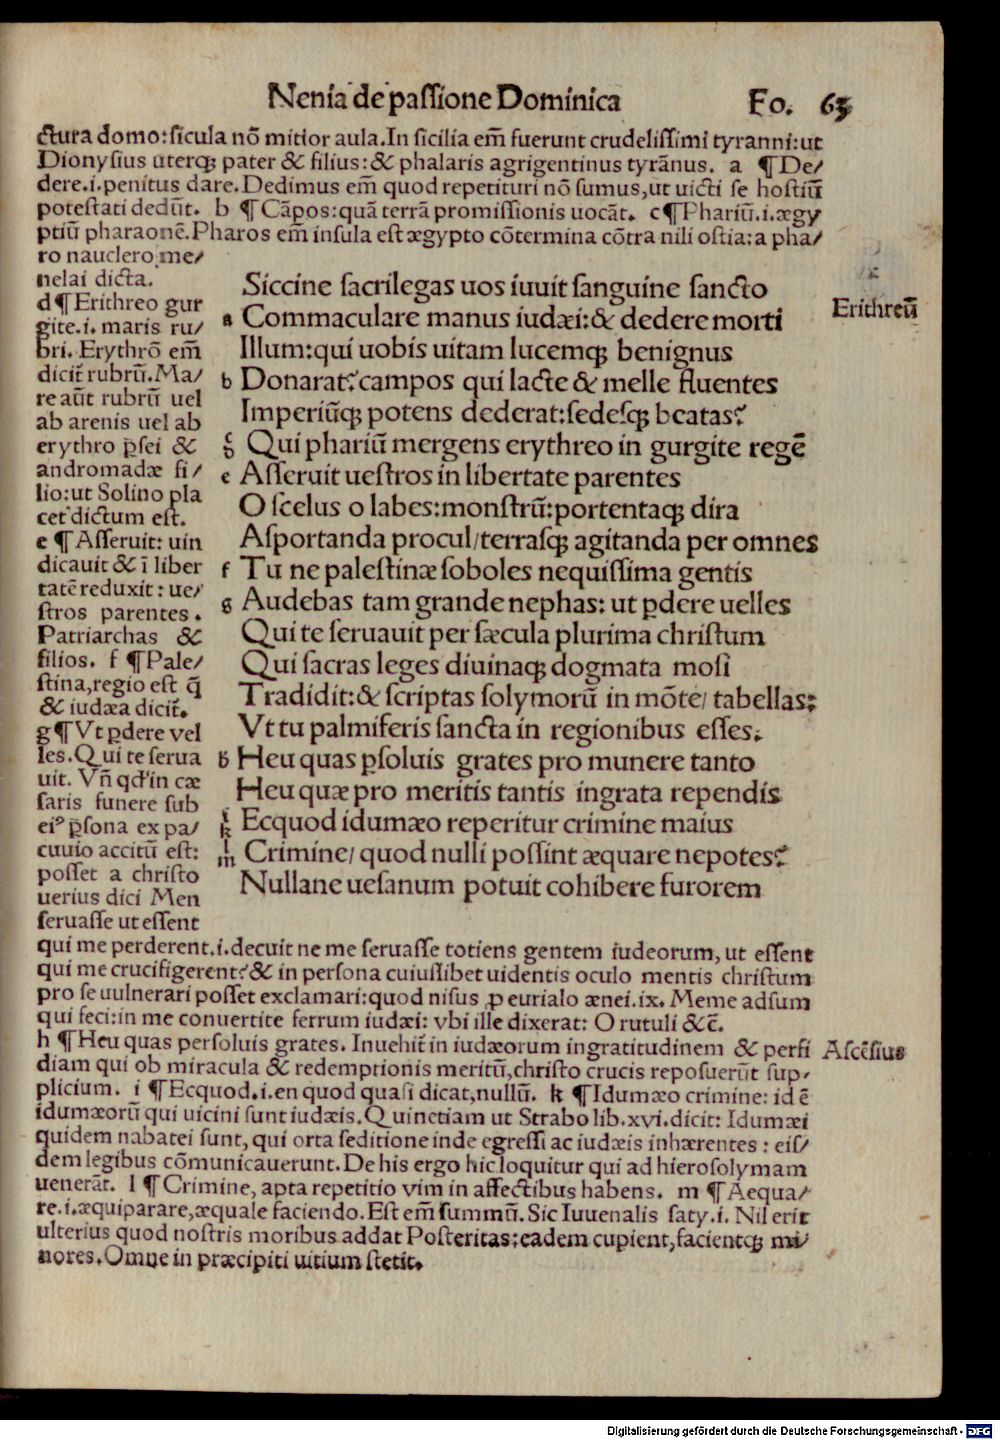 Nenia de passione Dominica Fo. 63
ctura domo:sicula nõ mitior aula.In sicilia em̃ fuerunt crudelissimi tyranni:ut
Dionysius uterq; pater & filius:& phalaris agrigentinus tyrãnus. a ¶De/
dere.i.penitus dare.Dedimus em̃ quod repetituri nõ sumus,ut uicti se hostiũ
potestati dedũt. b ¶Cãpos:quã terrã promissionis uocãt. c¶Phariũ.i.ægy
ptiũ pharaonẽ.Pharos em̃ insula est ægypto cõtermina cõtra nili ostia:a pha/
ro nauclero me/
nelai dicta.
d¶Erithreo gur
gite.i. maris ru/
bri. Erythrõ em̃
dicit̃ rubrũ.Ma/
re aũt rubrũ uel
ab arenis uel ab
erythro p̃sei &
andromadæ fi/
lio:ut Solino pla
cet dictum est.
e ¶Asseruit: uin
dicauit & ĩ liber
tatẽ reduxit: ue/
stros parentes.
Patriarchas &
filios. f ¶Pale/
stina,regio est q̃
& iudæa dicit̃.
g¶Vt p̱dere vel
les.Qui te serua
uit. Vñ qd' in cæ
saris funere sub
ei⁹ p̃sona ex pa/
cuuio accitũ est:
posset a christo
uerius dici Men
seruasse ut essent
Siccine sacrilegas uos iuuit sanguine sancto
a Commaculare manus iudæi:& dedere morti
Illum:qui uobis uitam lucemq; benignus
b Donarat?campos qui lacte & melle fluentes
Imperiũq; potens dederat:sedesq; beatas?
c d Qui phariũ mergens erythreo in gurgite regẽ
e Asseruit uestros in libertate parentes
O scelus o labes:monstrũ:portentaq; dira
Asportanda procul/terrasq; agitanda per omnes
f Tu ne palestinæ soboles nequissima gentis
g Audebas tam grande nephas: ut p̱dere uelles
Qui te seruauit per sæcula plurima christum
Qui sacras leges diuinaq; dogmata mosi
Tradidit:& scriptas solymorũ in mõte/ tabellas:
Vt tu palmiferis sancta in regionibus esses.
h Heu quas p̱soluis grates pro munere tanto
Heu quæ pro meritis tantis ingrata rependis
i k Ecquod idumæo reperitur crimine maius
l m Crimine/ quod nulli possint æquare nepotes?
Nullane uesanum potuit cohibere furorem
Erithreũ
qui me perderent.i.decuit ne me seruasse totiens gentem iudeorum, ut essent
qui me crucifigerent?& in persona cuiuslibet uidentis oculo mentis christum
pro se uulnerari posset exclamari:quod nisus ꝓ eurialo ænei.ix. Meme adsum
qui feci:in me conuertite ferrum iudæi: vbi ille dixerat: O rutuli &c̃.
h ¶Heu quas persoluis grates. Inuehit̃ in iudæorum ingratitudinem & perfi
diam qui ob miracula & redemptionis meritũ,christo crucis reposuerũt sup/
plicium. i ¶Ecquod.i.en quod quasi dicat,nullũ. k ¶Idumæo crimine: id ẽ
idumæorũ qui uicini sunt iudæis.Quinetiam ut Strabo lib.xvi.dicit: Idumæi
quidem nabatei sunt, qui orta seditione inde egressi ac iudæis inhærentes: eis/
dem legibus cõmunicauerunt.De his ergo hic loquitur qui ad hierosolymam
uenerãt. l ¶Crimine, apta repetitio vim in affectibus habens. m ¶Aequa/
re.i.æquiparare,æquale faciendo.Est em̃ summũ.Sic Iuuenalis saty.i. Nil erit
ulterius quod nostris moribus addat Posteritas:eadem cupient,facientq; mi/
nores.Omne in præcipiti uitium stetit.
Ascẽsius
Digitalisierung gefördert durch die Deutsche Forschungsgemeinschaft - DFG